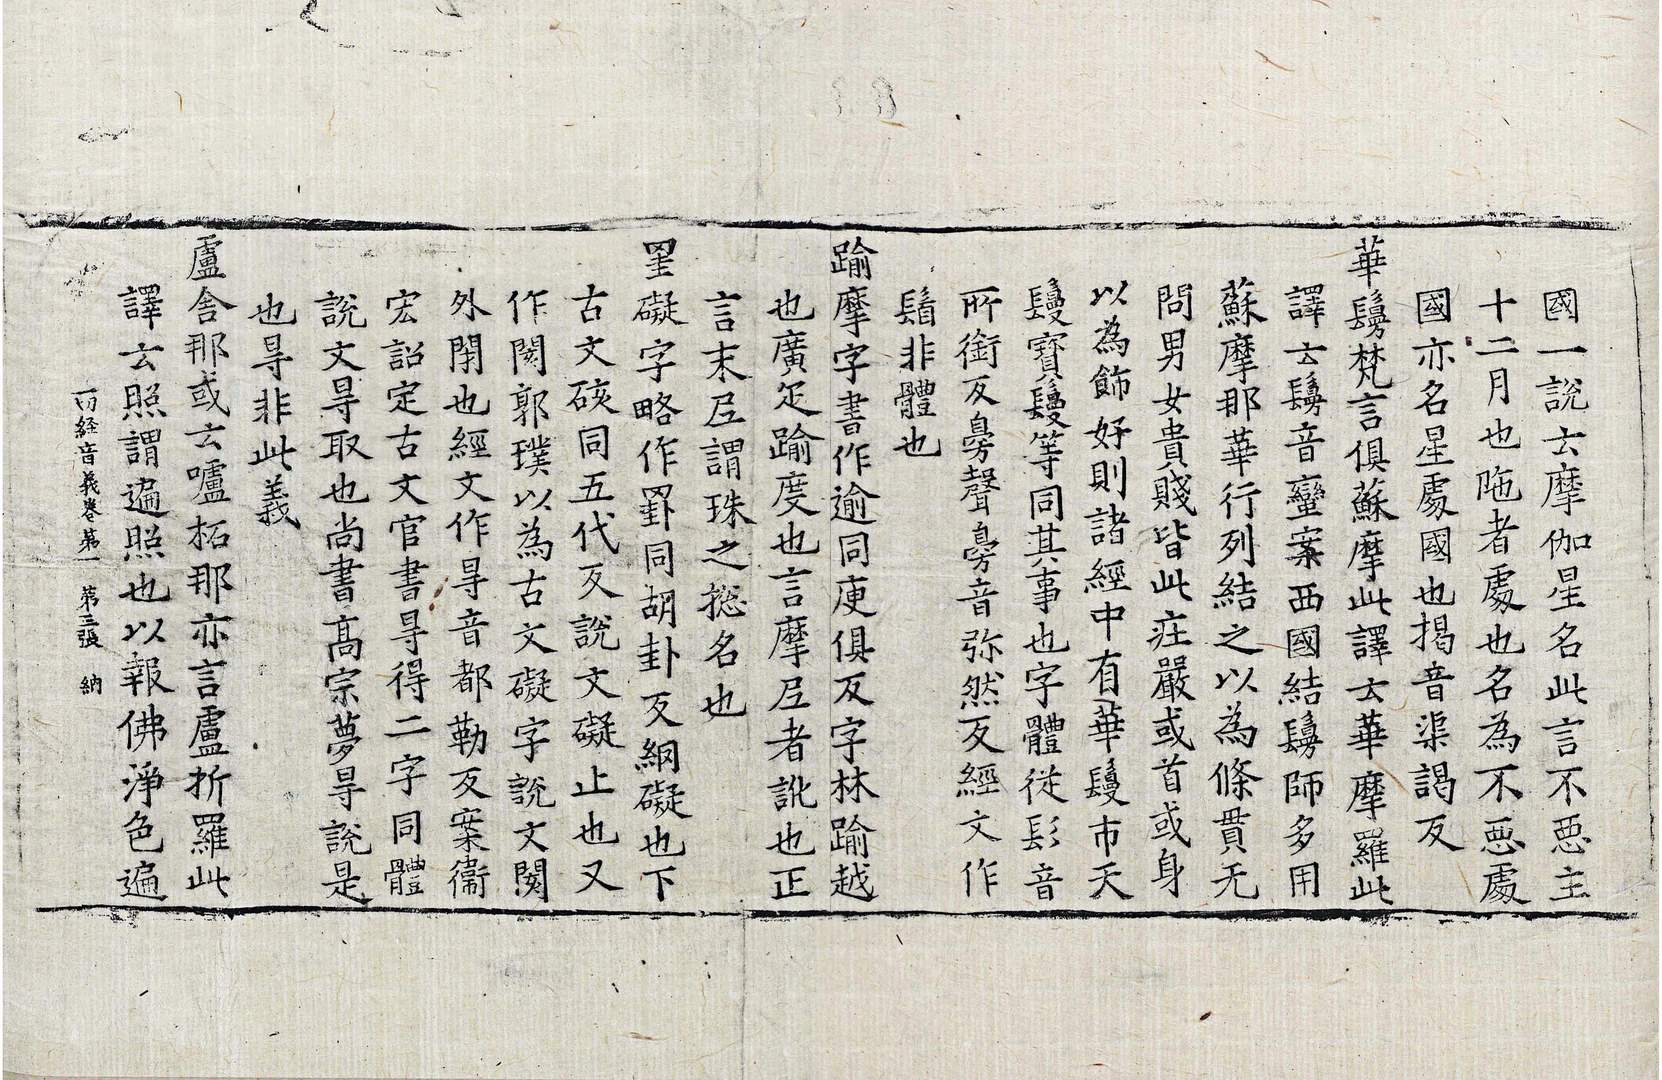 國一說云摩伽星名此言不惡主
十二月也陁者處也名為不惡處
國亦名星處國也揭音渠謁反
華鬘梵言俱蘇摩此譯云華摩羅此
譯云鬘音蠻案西國結鬘師多用
蘇摩那華行列結之以為條貫无
問男女貴賤皆此莊嚴或首或身
以為飾好則諸經中有華鬘市天
鬘寶鬘等同其事也字體從髟音
所銜反臱聲臱音弥然反經文作
鬚非體也
踰摩字書作逾同庾俱反字林踰越
也廣疋踰度也言摩𡰱者訛也正
言末𡰱謂珠之惣名也
罣礙字略作罫同胡卦反網礙也下
古文硋同五代反說文礙止也又
作閡郭璞以為古文礙字說文閡
外閉也經文作㝵音都勒反案衞
宏詔定古文官書㝵得二字同體
說文㝵取也尚書高宗夢㝵說是
也㝵非此義
盧舍那或云嚧柘那亦言盧折羅此
譯云照謂遍照也以報佛淨色遍
一切経音義卷第一 第三張 納